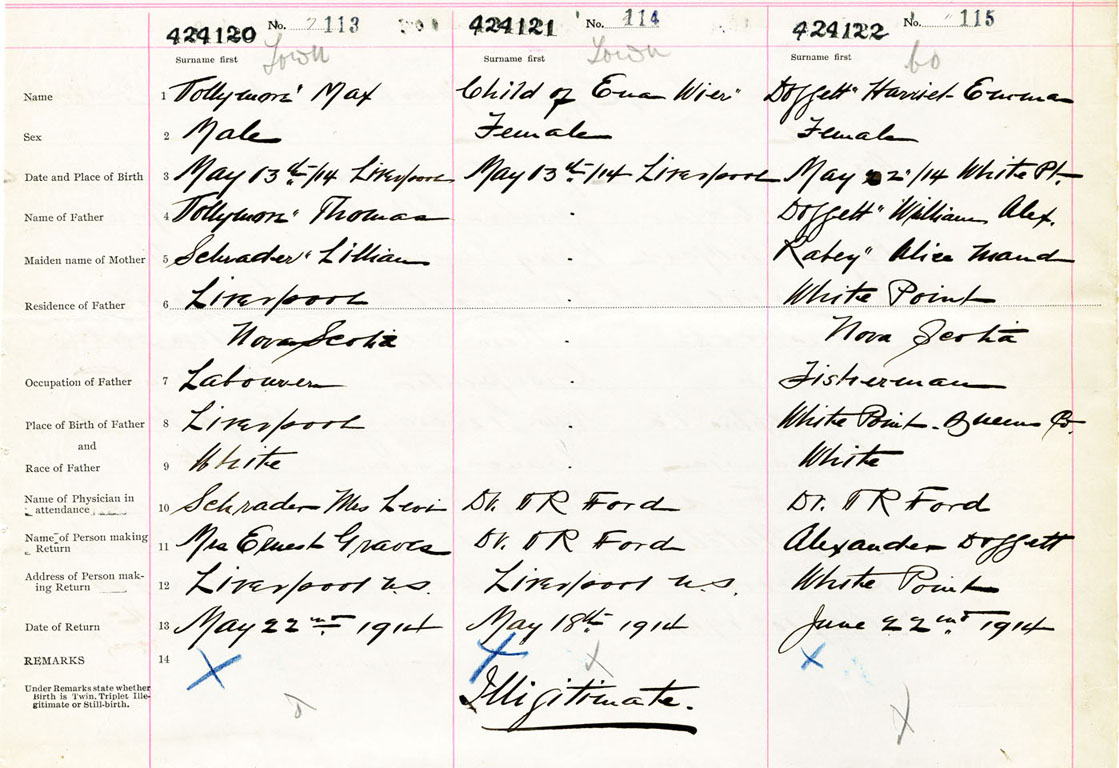 424120 No. 113 424121 No. 114 424122 No. 115
Surname first Town Surname first Town Surname first Co
Name 1 Tollymore" Max Child of Ena Wier" Doggett" Harriet Emma
Sex 2 Male Female Female
Date and Place of Birth 3 May 13th/14 Liverpool May 13th/14 Liverpool May 22"/14 White Pt.
Name of Father 4 Tollymore" Thomas - Doggett" William Alex.
Maiden name of Mother 5 Schrader" Lillian - Rabey" Alice Maud
Residence of Father 6 Liverpool - White Point
Nova Scotia - Nova Scotia
Occupation of Father 7 Labourer - Fisherman
Place of Birth of Father 8 Liverpool - White Point. Queens Co.
and
Race of Father 9 White - White
Name of Physician in
attendance 10 Schrader Mrs Levi Dr. TR Ford Dr. TR Ford
Name of Person making
Return 11 Mrs Ernest Graves Dr. TR Ford Alexander Doggett
Address of Person mak-
ing Return 12 Liverpool n.s. Liverpool n.s. White Point
Date of Return 13 May 22nd 1914 May 18th 1914 June 22nd 1914
REMARKS 14 X X X X
Under Remarks state whether
Birth is Twin, Triplet Ille-
gitimate or Still-birth.
Illigitimate.